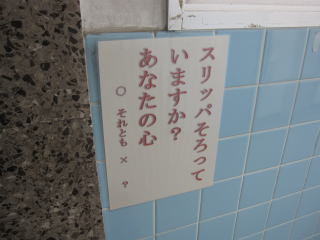 スリッパそろって
いますか？
あなたの心
○ それとも × ？